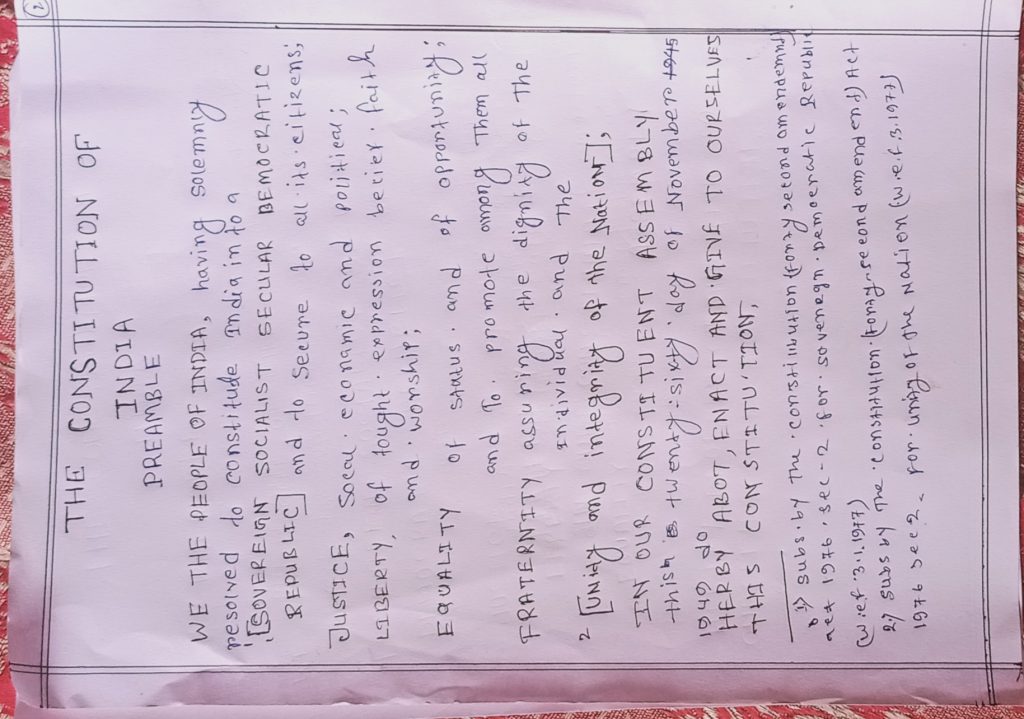 2
THE CONSTITUTION OF
INDIA
PREAMBLE
WE THE PEOPLE OF INDIA, having solemny
resolved to constitude India into a
1[SOVEREIGN SOCIALIST SECULAR DEMOCRATIC
REPUBLIC] and to secure to all its citizens;
JUSTICE, Socal economic and political;
LIBERTY, of tought expression belier faith
and worship;
EQUALITY of status and of opportunity;
and To promote among Them all
FRATERNITY assuring the dignity of the
individual and The
2 [Unity and integrity of the Nation];
IN OUR CONSTITUENT ASSEMBLY
this twenty-sixty day of November 1945
1949 do
HERBY ABOT, ENACT AND GIVE TO OURSELVES
THIS CONSTITUTION,
1) subs by The constilbution (forty second amendemnd)
act 1976 sec-2 for soveregn Democratic Republic
(w.ef 3.1.1977)
2) subs by The constitition (forty second amendend) Act
1976 sec 2. For unity of the Nation (w.e.f 3.1977)